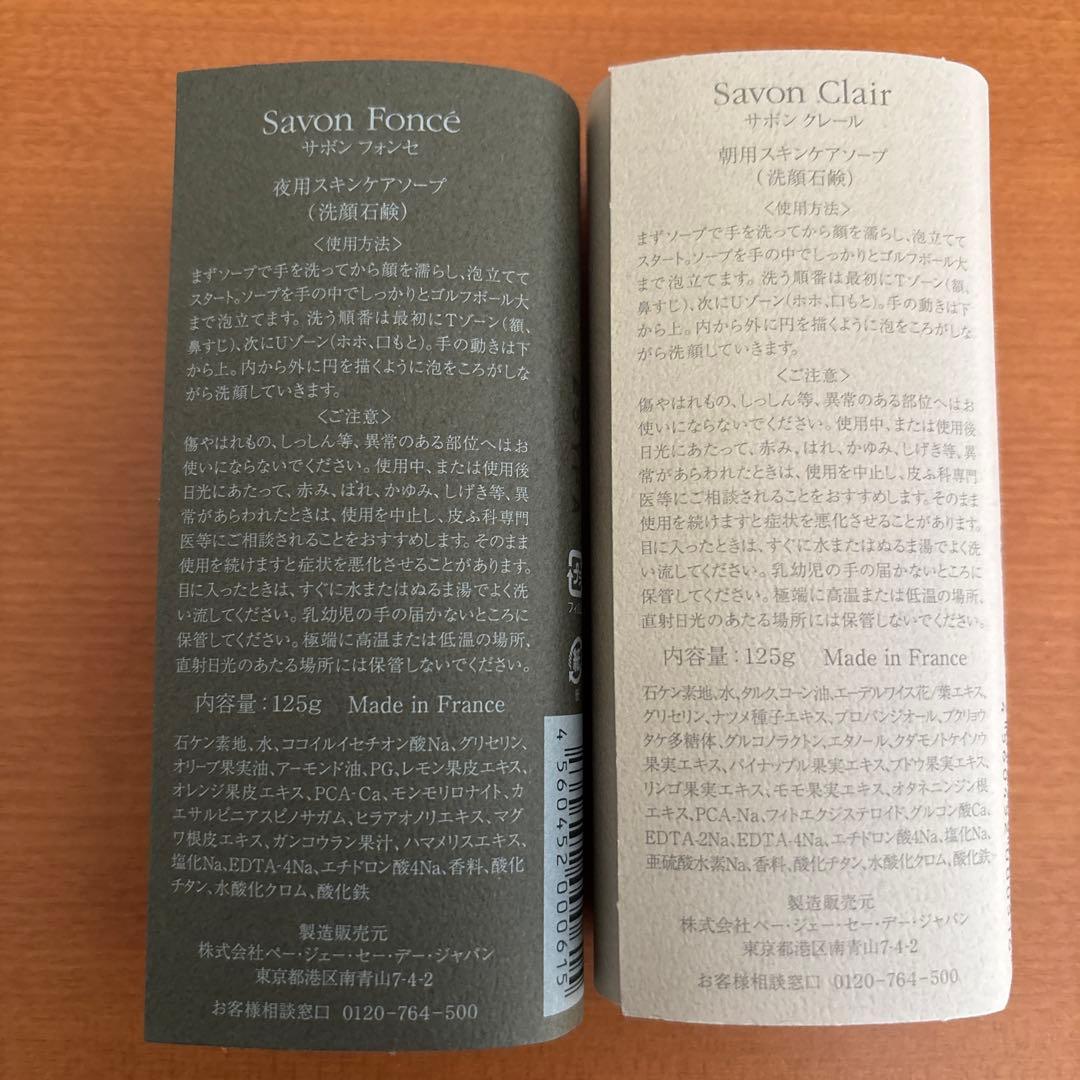 Savon Foncé
サボン フォンセ
夜用スキンケアソープ
(洗顔石鹸)
<使用方法>
まずソープで手を洗ってから顔を濡らし、泡立てて
スタート。ソープを手の中でしっかりとゴルフボール大
まで泡立てます。洗う順番は最初にTゾーン(額、
鼻すじ)、次にUゾーン(ホホ、口もと)。手の動きは下
から上。内から外に円を描くように泡をころがしな
がら洗顔していきます。
<ご注意>
傷やはれもの、しっしん等、異常のある部位へはお
使いにならないでください。使用中、または使用後
日光にあたって、赤み、はれ、かゆみ、しげき等、異
常があらわれたときは、使用を中止し、皮ふ科専門
医等にご相談されることをおすすめします。そのまま
使用を続けますと症状を悪化させることがあります。
目に入ったときは、すぐに水またはぬるま湯でよく洗
い流してください。乳幼児の手の届かないところに
保管してください。極端に高温または低温の場所、
直射日光のあたる場所には保管しないでください。
内容量:125g Made in France
石ケン素地、水、ココイルイセチオン酸Na、グリセリン、
オリーブ果実油、アーモンド油、PG、レモン果皮エキス、
オレンジ果皮エキス、PCA-Ca、モンモリロナイト、カ
エサルピニアスピノサガム、ヒラアオノリエキス、マグ
ワ根皮エキス、ガンコウラン果汁、ハマメリスエキス、
塩化Na、EDTA-4Na、エチドロン酸4Na、香料、酸化
チタン、水酸化クロム、酸化鉄
製造販売元
株式会社ペー・ジェー・セー・デー・ジャパン
東京都港区南青山7-4-2
お客様相談窓口 0120-764-500
4 560452 000615
Savon Clair
サボン クレール
朝用スキンケアソープ
(洗顔石鹸)
<使用方法>
まずソープで手を洗ってから顔を濡らし、泡立てて
スタート。ソープを手の中でしっかりとゴルフボール大
まで泡立てます。洗う順番は最初にTゾーン(額、
鼻すじ)、次にUゾーン(ホホ、口もと)。手の動きは下
から上。内から外に円を描くように泡をころがしな
がら洗顔していきます。
<ご注意>
傷やはれもの、しっしん等、異常のある部位へはお
使いにならないでください。使用中、または使用後
日光にあたって、赤み、はれ、かゆみ、しげき等、異
常があらわれたときは、使用を中止し、皮ふ科専門
医等にご相談されることをおすすめします。そのまま
使用を続けますと症状を悪化させることがあります。
目に入ったときは、すぐに水またはぬるま湯でよく洗
い流してください。乳幼児の手の届かないところに
保管してください。極端に高温または低温の場所、
直射日光のあたる場所には保管しないでください。
内容量:125g Made in France
石ケン素地、水、タルク、コーン油、エーデルワイス花/葉エキス、
グリセリン、ナツメ種子エキス、プロパンジオール、ブクリョウ
タケ多糖体、グルコノラクトン、エタノール、クダモノトケイソウ
果実エキス、パイナップル果実エキス、ブドウ果実エキス、
リンゴ果実エキス、モモ果実エキス、オタネニンジン根
エキス、PCA-Na、フィトエクジステロイド、グルコン酸Ca、
EDTA-2Na、EDTA-4Na、エチドロン酸4Na、塩化Na、
亜硫酸水素Na、香料、酸化チタン、水酸化クロム、酸化鉄
製造販売元
株式会社ペー・ジェー・セー・デー・ジャパン
東京都港区南青山7-4-2
お客様相談窓口 0120-764-500